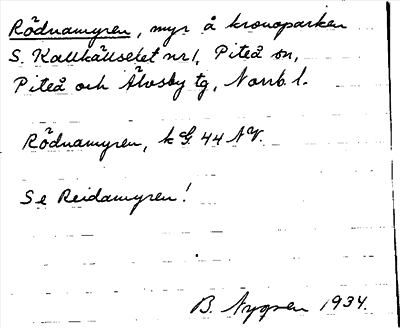 Rödnamyren, myr å kronoparken
S. Kallkällsetet nr 1, Piteå sn,
Piteå och Älvsby tg, Norrb. l.
Rödnamyren, k G. 44 NV.
Se Reidamyren!
B. 1934.